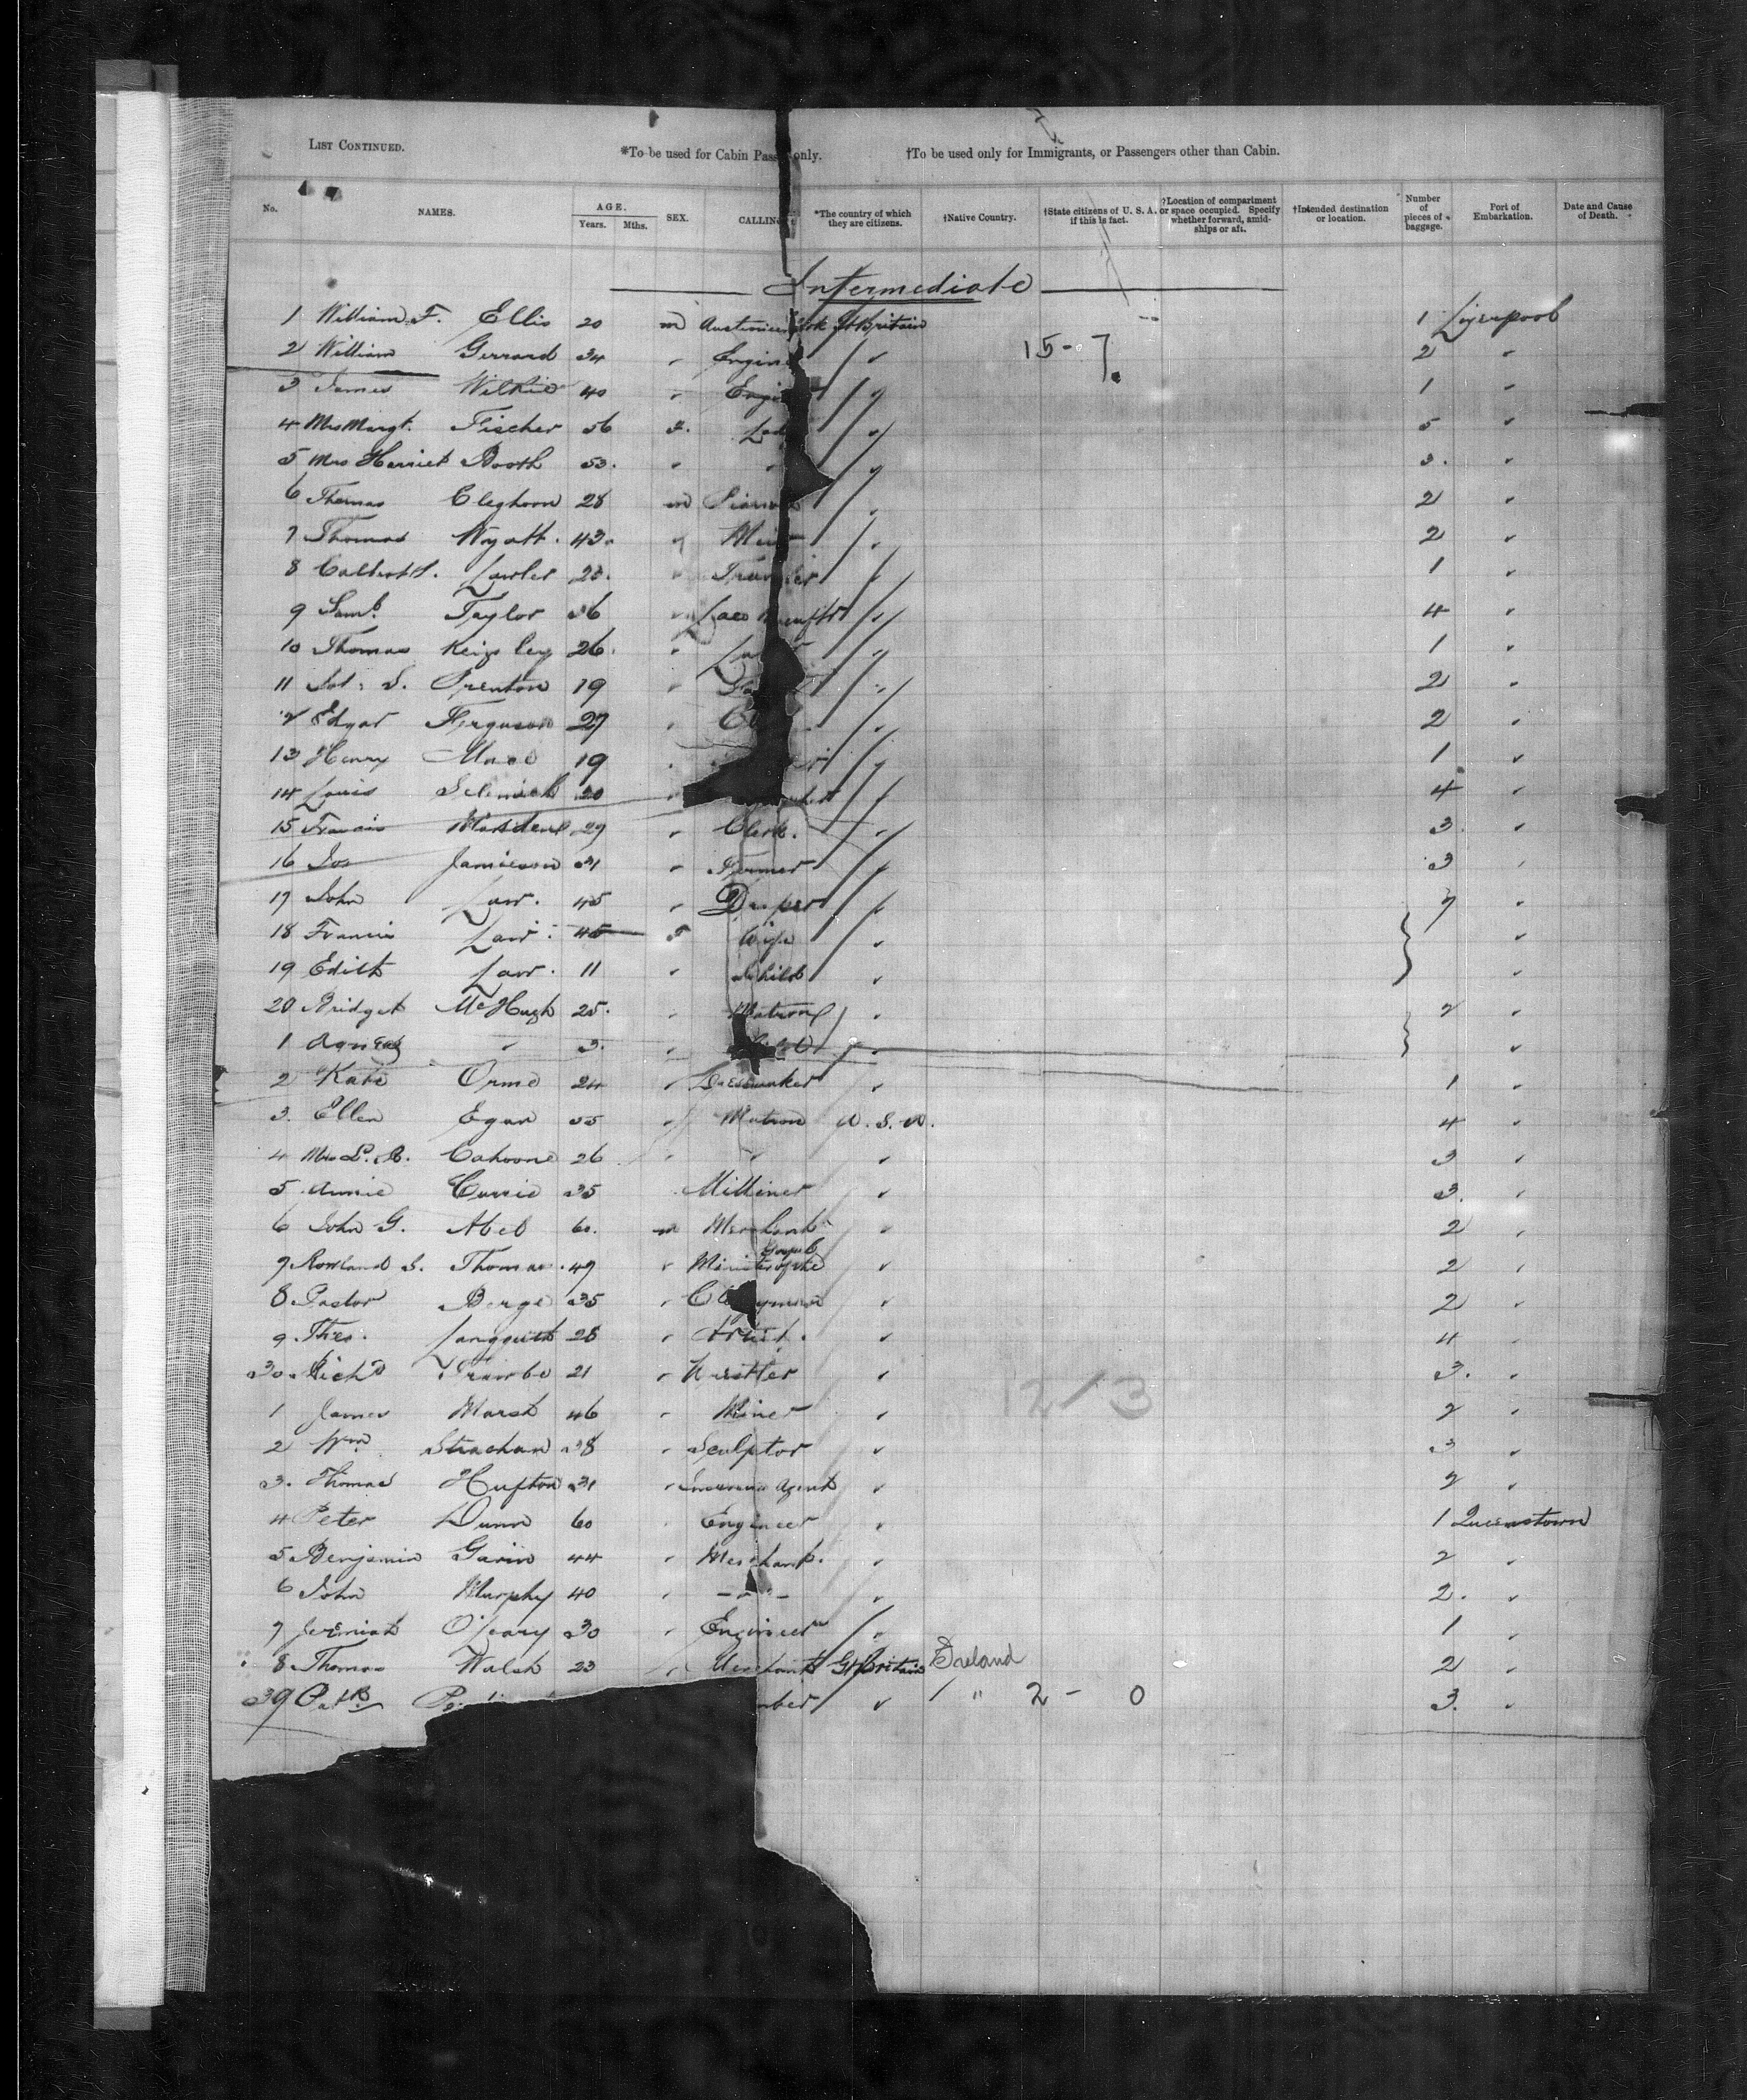 LIST CONTINUED. *To be used for Cabin Pass only. †To be used only for Immigrants, or Passengers other than Cabin.
No. NAMES. AGE. Years. Mths. SEX. CALLING *The country of which they are citizens. †Native Country. †State citizens of U. S. A. if this is fact. †Location of compartment or space occupied. Specify whether forward, amidships or aft. †Intended destination or location. Number of pieces of baggage. Port of Embarkation. Date and Cause of Death.
Intermediate
1 William F. Ellis 20 m Gt Britain 1 Liverpool
2 William Gerrard 34 " Engin " 15-7. 2 "
3 James Wilkie 40 " Engi " 1 "
4 Mrs Margt. Fischer 56 F. Lad " 5 "
5 Mrs Harriet Booth 53. " " " 3. "
6 Thomas Cleghorn 28 m " 2 "
7 Thomas Wyatt. 43. " " 2 "
8 Lawler " " 1 "
9 Saml. Taylor 36 " Lace " 4 "
10 Thomas 26. " " 1 "
11 S. Prenton 19 " " 2 "
2 Edgar Ferguson 27 " Cl " 2 "
13 Henry 19 " " 1 "
14 Louis 20 " " 4 "
15 Francis Marsden 29 " Clerk. " 3 "
16 Jos Jamieson 31 " Farmer " 3 "
17 John Law. 45 " Draper " 7 "
18 Francis Law. 45 F Wife " "
19 Edith Law. 11 " Child " "
20 Bridget McHugh 25. " Matron " 2 "
1 Agnes " 3. " " "
2 Kate Orme 24 " Dressmaker " 1 "
3. Ellen Egan 35 " Matron U. S. A. 4 "
4 Mrs Cahoone 26 " " " 3 "
5 Annie Currie 35 Milliner " 3. "
6 John G. Abel 60. m Merchant " 2 "
7 Rowland S. Thomas. 49 " Minister of the Gospel " 2 "
8 Pastor Berge 35 " Cl ymen " 2 "
9. Theo. Langguth 28 " Artist. " 4 "
30 Richd 21 " " 3. "
12/3
1 James Marsh 46 " Miner " 2 "
2 Wm Strachan 38 " Sculptor " 3 "
3. Thomas Hufton 31 " Insurance Agent " 2 "
4 Peter Dunn 60 " Engineer " 1 Queenstown
5 Benjamin 44 " Merchant. " 2 "
6 John Murphy 40 " -"- " 2. "
7 Jeremiah O'Leary 30 " Engineer " 1 "
8 Thomas Walsh 23 " Merchant Gt Britain Ireland 2 "
39 Patk mber " " 2 - 0 3. "